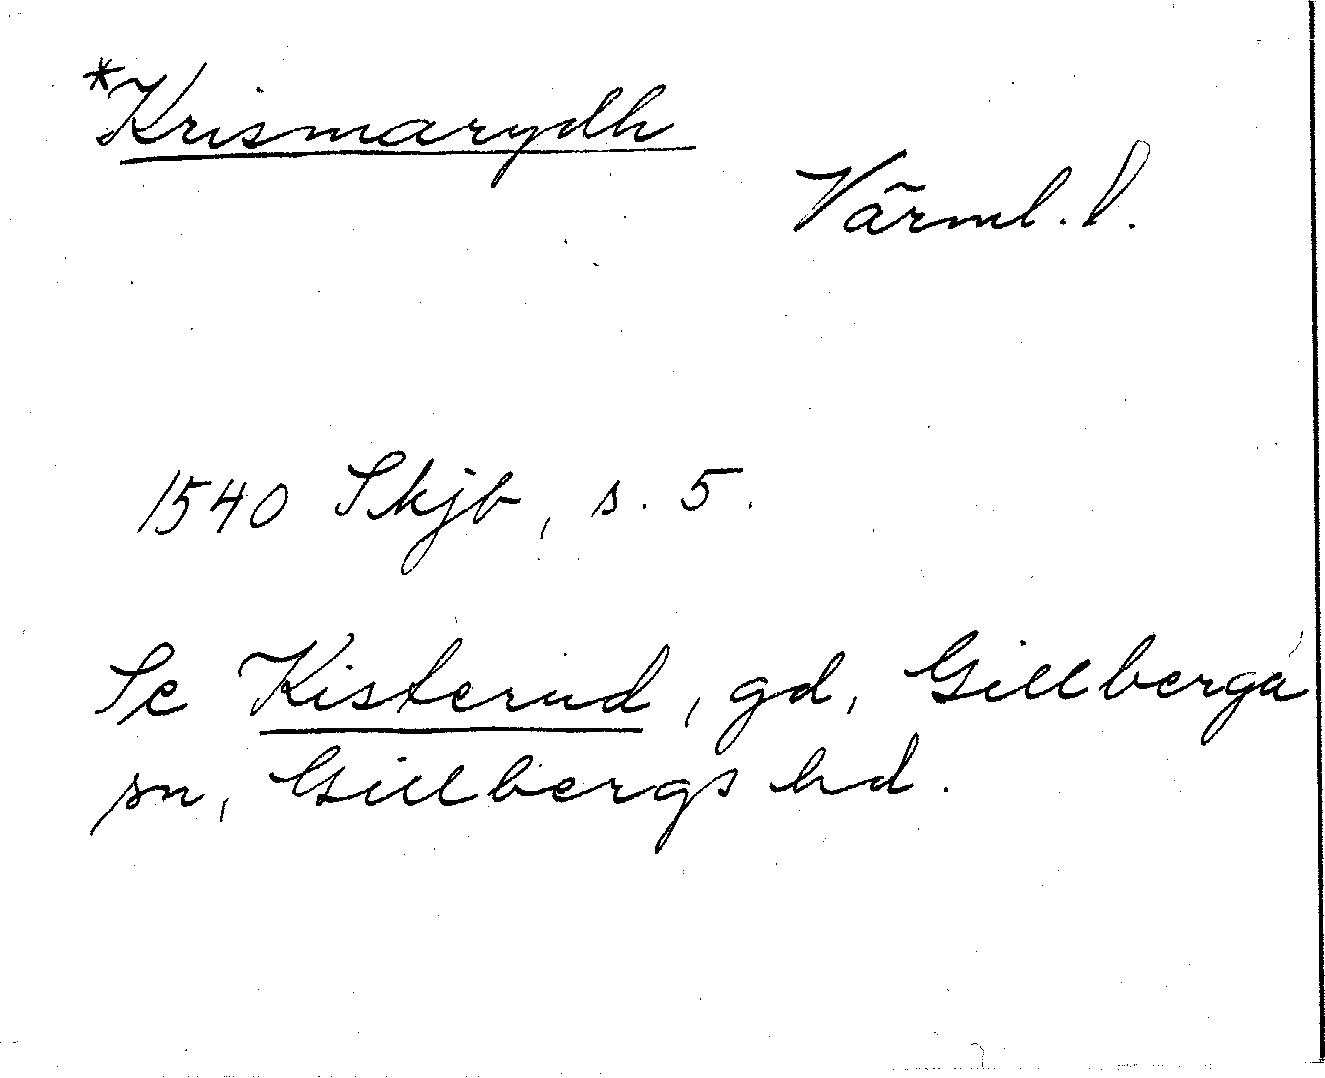 *Krismarydh
Värml. l.
1540 Skjb, s. 5.
Se Kisterud, gd, Gillberga
sn, Gillbergs hd.